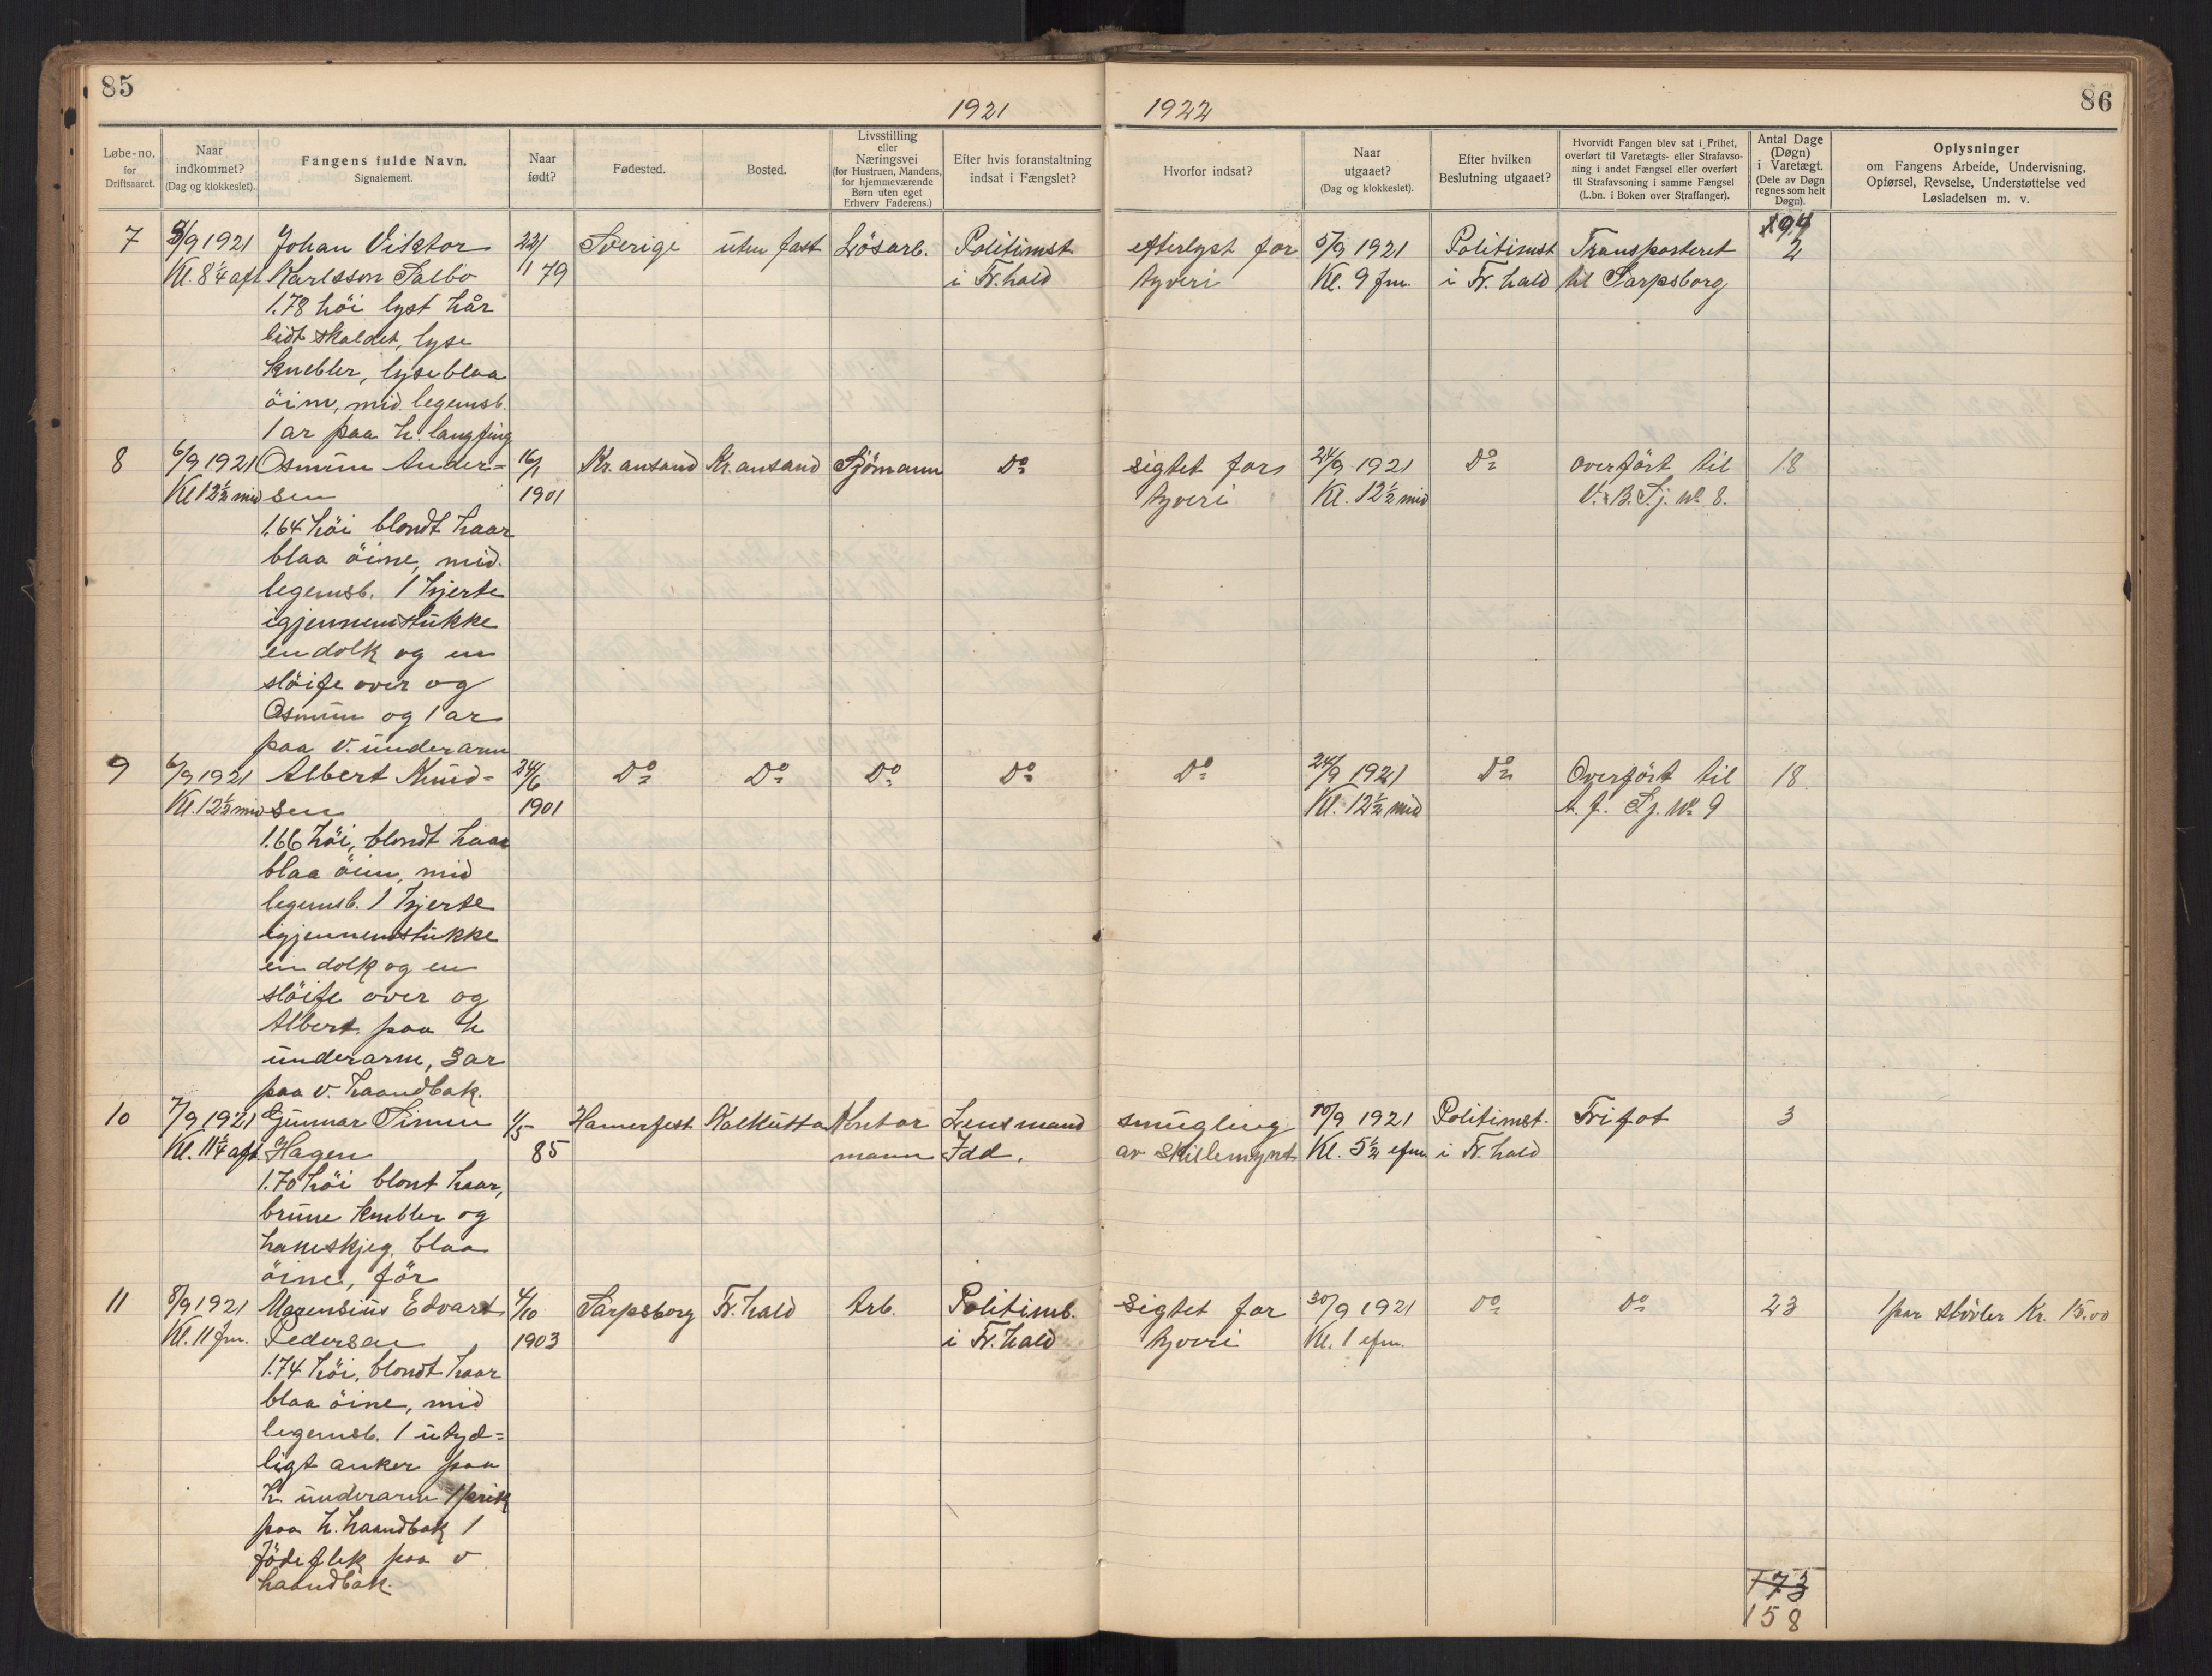 85
1921
1922
86
Løbe-no. for Driftsaaret.
Naar indkommet? (Dag og klokkeslet).
Fangens fulde Navn. Signalement.
Naar født?
Fødested.
Bosted.
Livsstilling eller Næringsvei (for Hustruen, Mandens, for hjemmeværende Børn uten eget Erhverv Faderens.)
Efter hvis foranstaltning indsat i Fængslet?
Hvorfor indsat?
Naar utgaaet? (Dag og klokkeslet).
Efter hvilken Beslutning utgaaet?
Hvorvidt Fangen blev sat i Frihet, overført til Varetægts- eller Strafavsoning i andet Fængsel eller overført til Strafavsoning i samme Fængsel (L.bn. i Boken over Straffanger).
Antal Dage (Døgn) i Varetægt. (Dele av Døgn regnes som helt Døgn).
Oplysninger om Fangens Arbeide, Undervisning, Opførsel, Revselse, Understøttelse ved Løsladelsen m. v.
7 9/1921 Johan Viktor 22/ Sverige uten fast Lösarb. Politimst efterlyst for 5/9 1921 Politimst Transporteret 2
Kl. 8¼ aft Karlsson Salbo 11 79 i Fr.hald tyveri Kl. 9 fm. i Fr. hald til Sarpsborg
1.78 höi lyst hår
lidt skaldet, lyse
knebler, lyseblaa
öine, mid. legemsb.
1 ar paa h. langfing
8 6/9 1921 Osmun Ander= 16/1 Kr.ansand Kr.ansand Sjömann Do sigtet for 24/9 1921 Do overfört til 18
Kl 12½ mid sen 1901 tyveri Kl. 12½ mid V. B. Fj. No 8.
1.64 höi blondt haar
blaa öine, mid.
legemsb. 1 hjerte
igjennemstukke
en dolk og en
slöife over og
Osmun og 1 ar
paa v. underarm
9 6/9 1921 Albert Knud= 24/6 Do Do Do Do Do 24/9 1921 Do Overfört til 18.
Kl. 12½ mid sen 1901 Kl. 12½ mid No 9
1.66 höi, blondt haar
blaa öine, mid
legemsb. 1 hjerte
igjennemstukke
en dolk og en
slöife over og
Albert paa h
underarm, 3 ar
paa v. haandbak.
10 7/9 1921 Gunnar Simen 1/5 Hamerfest Kalkutta Kontor Lensmand smugling 10/9 1921 Politimst. Fri fot 3
Kl. 11¼ aft. Hagen 85 mann Idd. av skillemynt Kl. 5½ efm i Fr. hald
1.70 höi blont haar,
brune knebler og
hakeskjeg, blaa
öine, för
11 8/9 1921 Magensius Edvart 4/10 Sarpsborg Fr. hald Arb. Politimb. sigtet for 30/9 1921 Do Do 23 1 par stövler Kr. 15.00
Kl. 11 fm. Pedersen 1903 i Fr. hald tyveri Kl. 1 efm.
1.74 höi, blondt haar
blaa öine, mid
legemsb. 1 utyd=
ligt anker paa
h. underarm 1 prik
paa h. haandbak 1
födeflek paa v
haandbak.
173
158